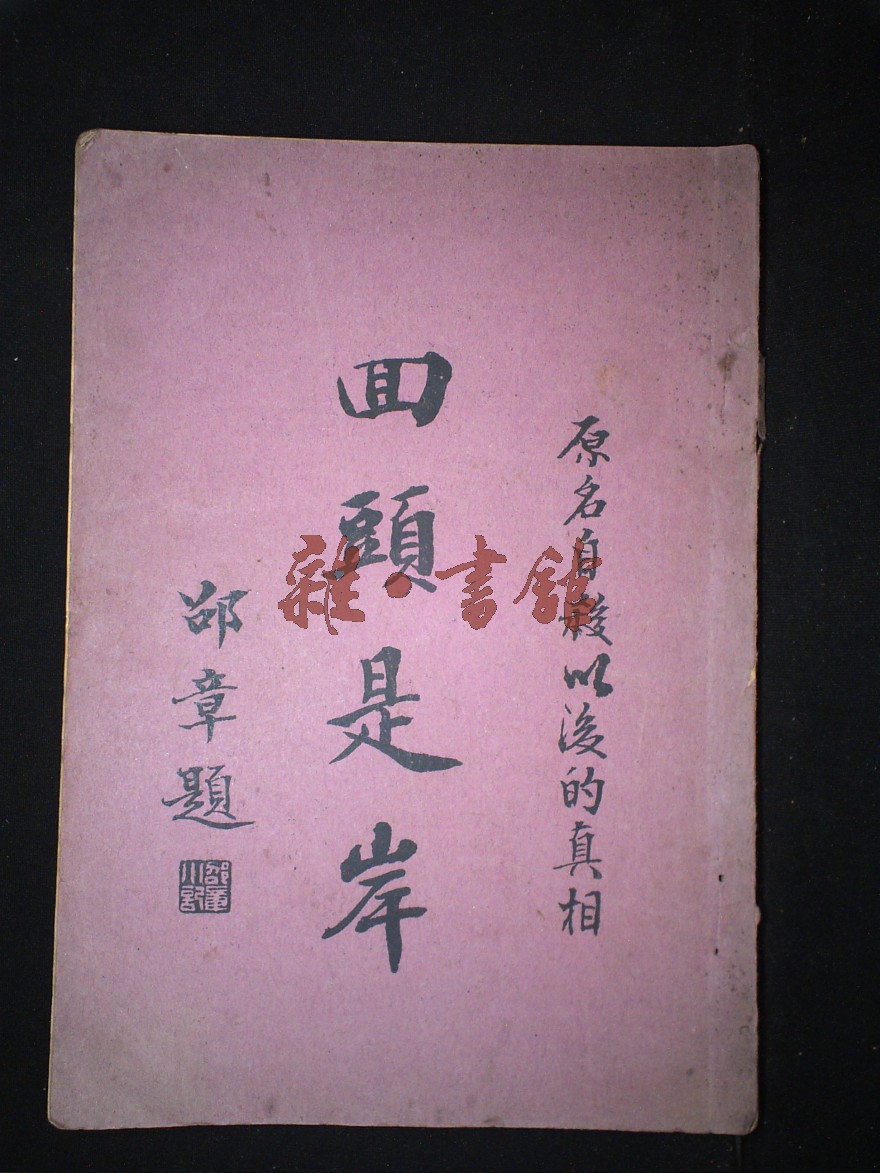 原名自殺以後的真相
回頭是岸
邵章題
邵章小記
雜·書館